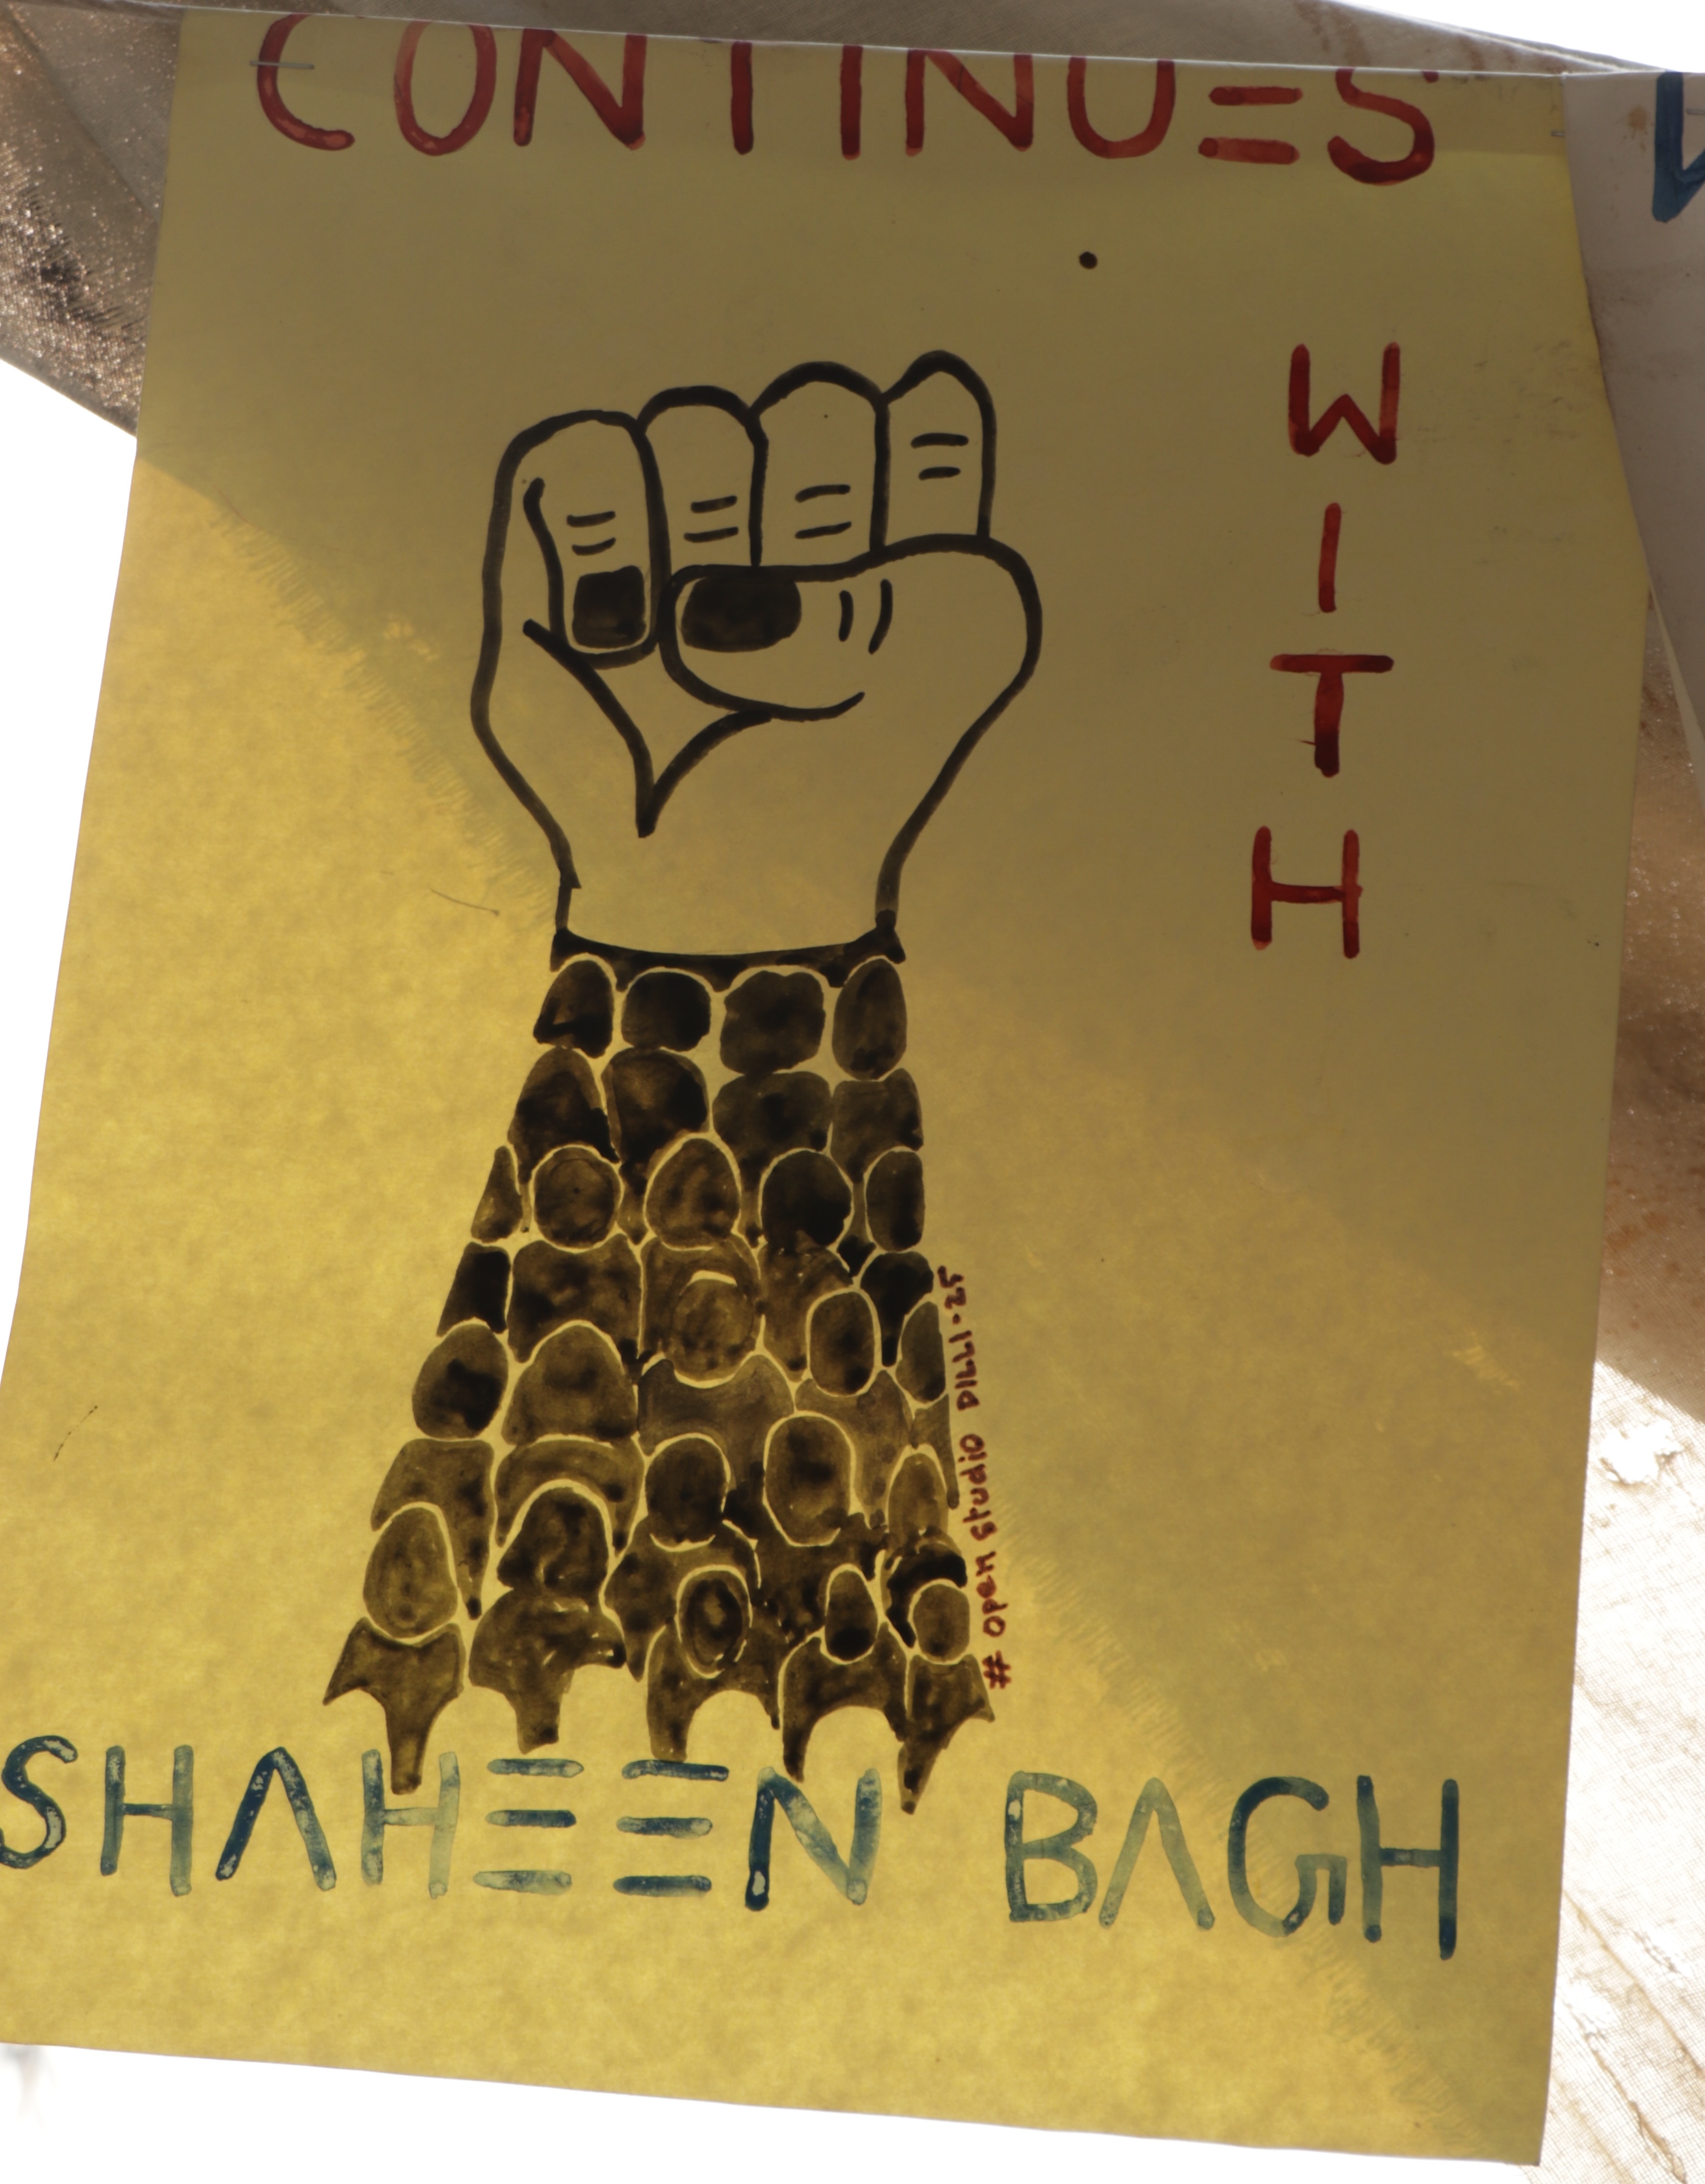 CONTINUES
WITH
# open studio DILLI-25
SHAHEEN BAGH